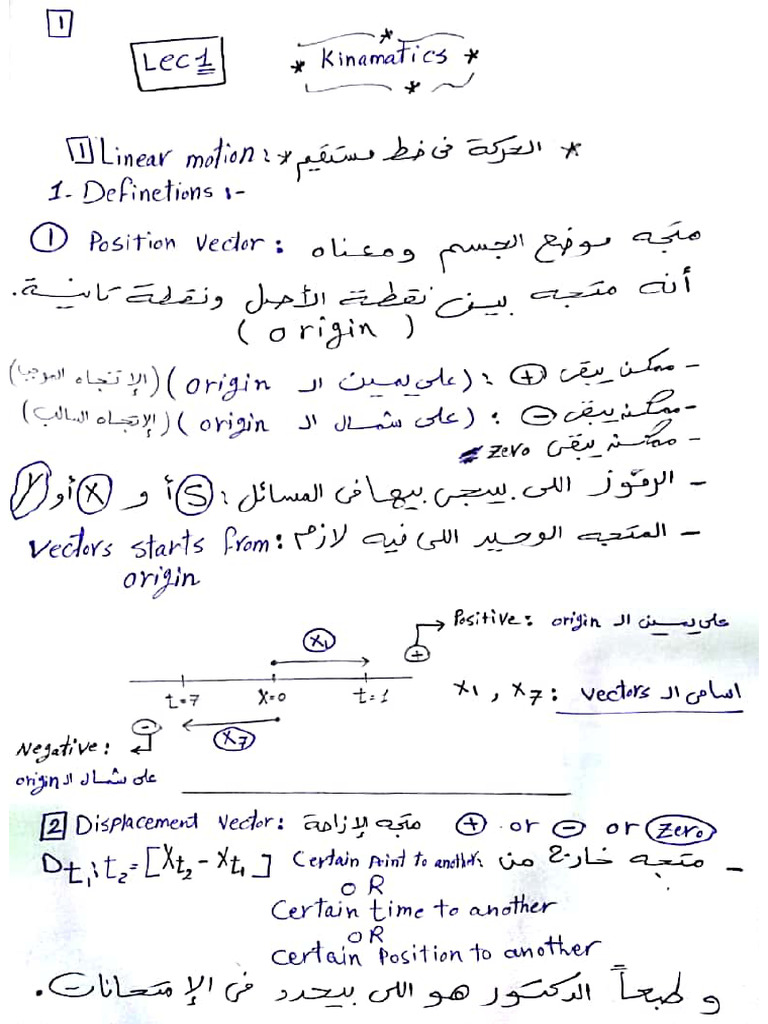 1
Lec 1
* Kinamatics *
1 Linear motion : * الحركة فى خط مستقيم *
1- Definetions :-
1 Position vector : متجه موضع الجسم ومعناه
أنه متجه بين نقطة الأصل ونقطة تانية.
(origin)
- ممكن يبقى + : (على يمين الـ origin) (الإتجاه الموجب)
- ممكن يبقى - : (على شمال الـ origin) (الإتجاه السالب)
- ممكن يبقى zero
- الرموز اللى بييجى بيها فى المسائل : S أ و X أو Y
- المتجه الوحيد اللى فيه لازم : vectors starts from
origin
Positive : على يمين الـ origin
X1
+
t=7 X=0 t=1
X1 , X7 : اسامى الـ vectors
-
X7
Negative :
على شمال الـ origin
2 Displacement vector : متجه الإزاحة + or - or zero
- متجه خارج من Certain Point to another
Dt1:t2 = [Xt2 - Xt1]
OR
Certain time to another
OR
certain Position to another
و طبعاً الدكتور هو اللى بيحدد فى الإمتحانات.